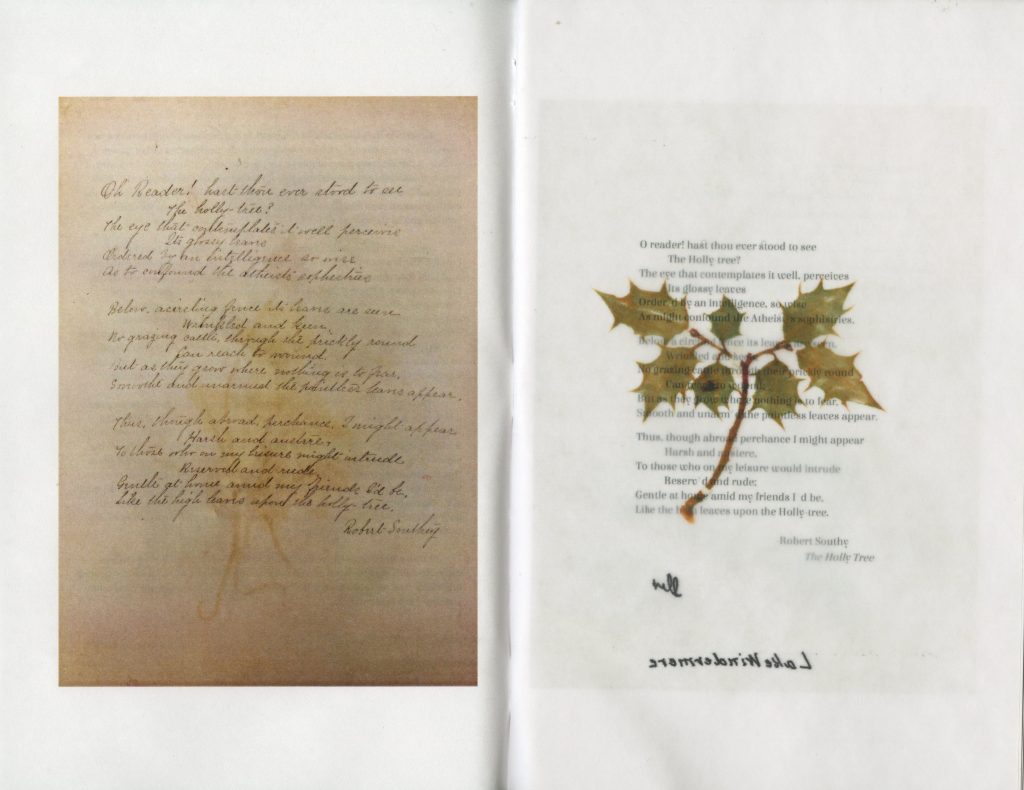 Oh Reader! hast thou ever stood to see
The holly-tree?
The eye that contemplates it well perceives
Its glossy leaves
Ordered by an intelligence so wise
As to confound the atheist's sophistries
Below, a circling fence its leaves are seen
Wrinkled and keen,
No grazing cattle, through the prickly round
Can reach to wound.
But as they grow where nothing is to fear,
Smooth and unarmed the pointless leaves appear.
Thus, though abroad, perchance, I might appear
Harsh and austere,
To those who on my leisure might intrude
Reserved and rude,
Gentle at home amid my friends I'd be,
Like the high leaves upon the holly-tree.
Robert Southey
O reader! hast thou ever stood to see
The Holly tree?
The eye that contemplates it well, perceives
Its glossy leaves
Order'd by an intelligence, so wise
As might confound the Atheist's sophistries.
Below a circling fence its leaves are seen,
Wrinkled and keen
No grazing cattle through their prickly round
Can reach to wound;
But as they grow where nothing is to fear,
Smooth and unarm'd the pointless leaves appear.
Thus, though abroad perchance I might appear
Harsh and austere,
To those who on my leisure would intrude
Reserv'd and rude;
Gentle at home amid my friends I'd be,
Like the high leaves upon the Holly-tree.
Robert Southy
The Holly Tree
Lake Windermere